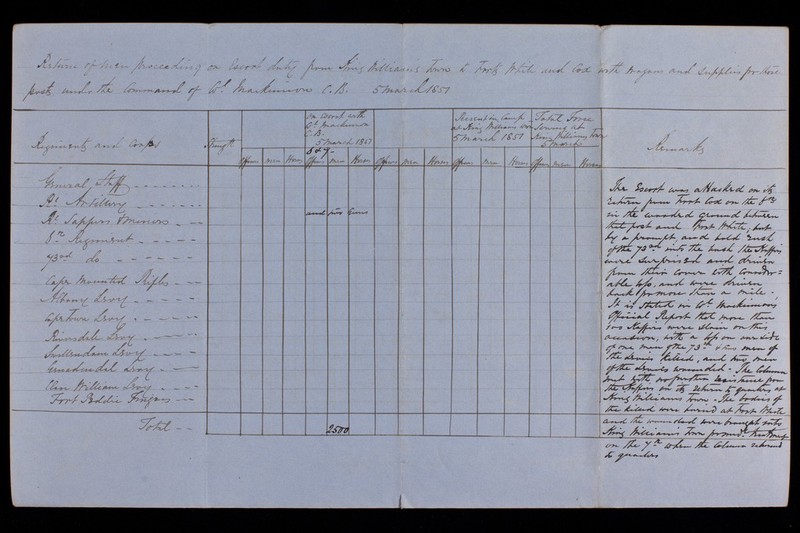 Return of Men proceeding on Escort duty from King Williams Town to Forts White and Cox with Wagons and Supplies for those
posts, under the Command of Col Mackinnon C.B. 5 March 1851
Regiments and Corps
Strength
on Escort with
Col Mackinnon
C.B.
5 March 1851
Present in Camp
at King Williams Town
5 March 1851
Total Force
Serving at
King Williams Town
5 March
Remarks
Officers men Horses Officers men Horses Officers men Horses Officers men Horses Officers men Horses
General Staff
Rl Artillery
and two Guns
Rl Sappers & Miners
6th Regiment
73rd do
Cape Mounted Rifles
Albany Levy
Cape Town Levy
Riversdale Levy
Swellendam Levy
Genadendal Levy
Clan William Levy
Fort Peddie Fingoes
Total
2500
The Escort was attacked on its
return from Fort Cox on the 6th
in the wooded ground between
that post and Fort White, but
by a prompt and bold rush
of the 73rd into the bush the Kaffirs
were surprised and driven
from their cover with consider=
able loss, and were driven
back for more than a mile.
It is stated in Col Mackinnon's
Official Report that more than
100 Kaffirs were slain on this
occasion, with a loss on our side
of one man of the 73rd & two men of
the Levies killed, and two men
of the Levies wounded. The Column
met with no further resistance from
the Kaffirs on its return to quarters at
King Williams Town. The bodies of
the killed were buried at Fort White
and the wounded were brought into
King Williams Town
on the 7th when the Column returned
to quarters